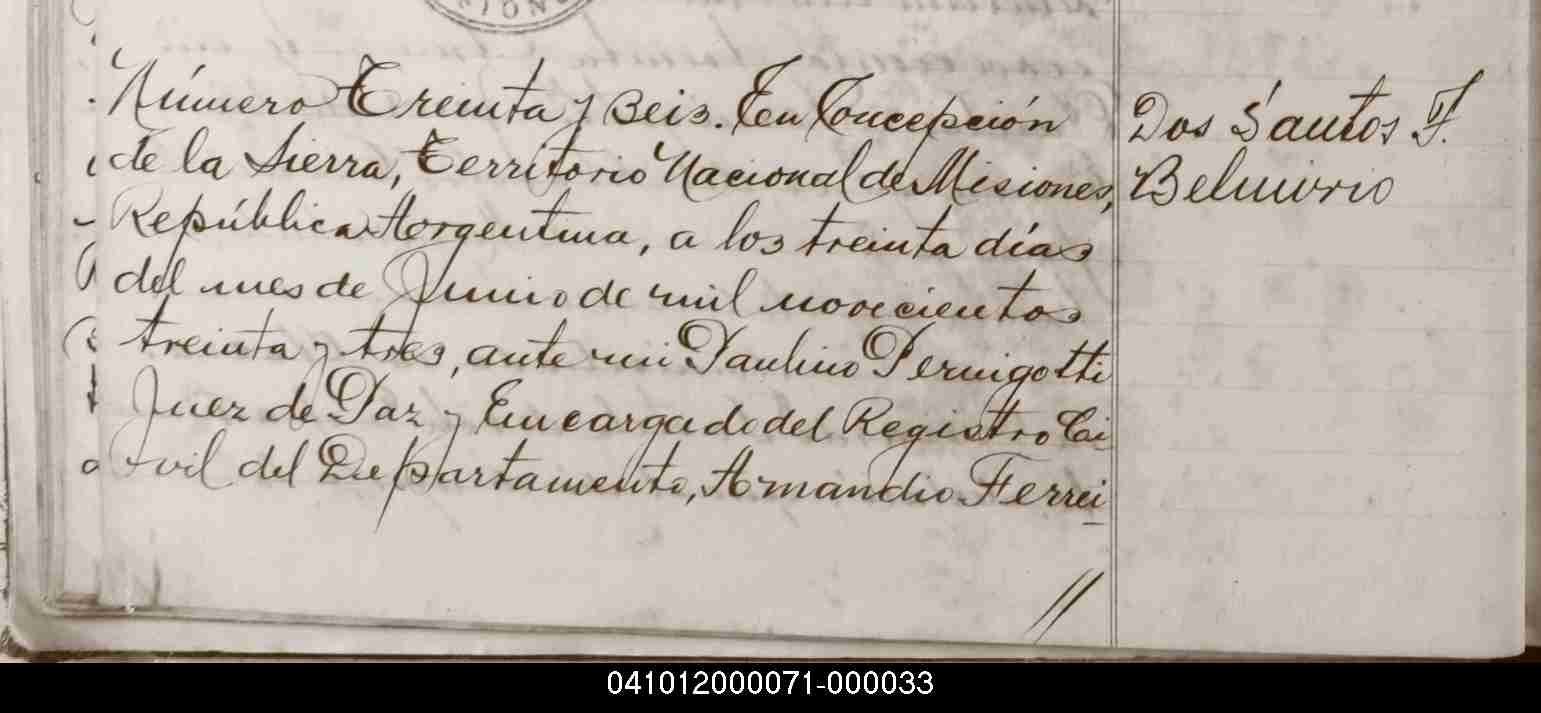 Número Treinta y Seis. En Concepción
de la Sierra, Territorio Nacional de Misiones,
República Argentina, a los treinta días
del mes de Junio de mil novecientos
treinta y tres, ante mi Paulino Pernigotti
Juez de Paz y Encargado del Registro Ci
vil del Departamento, Amandio Ferrei
//
Dos Santos F.
Belmiro
041012000071-000033